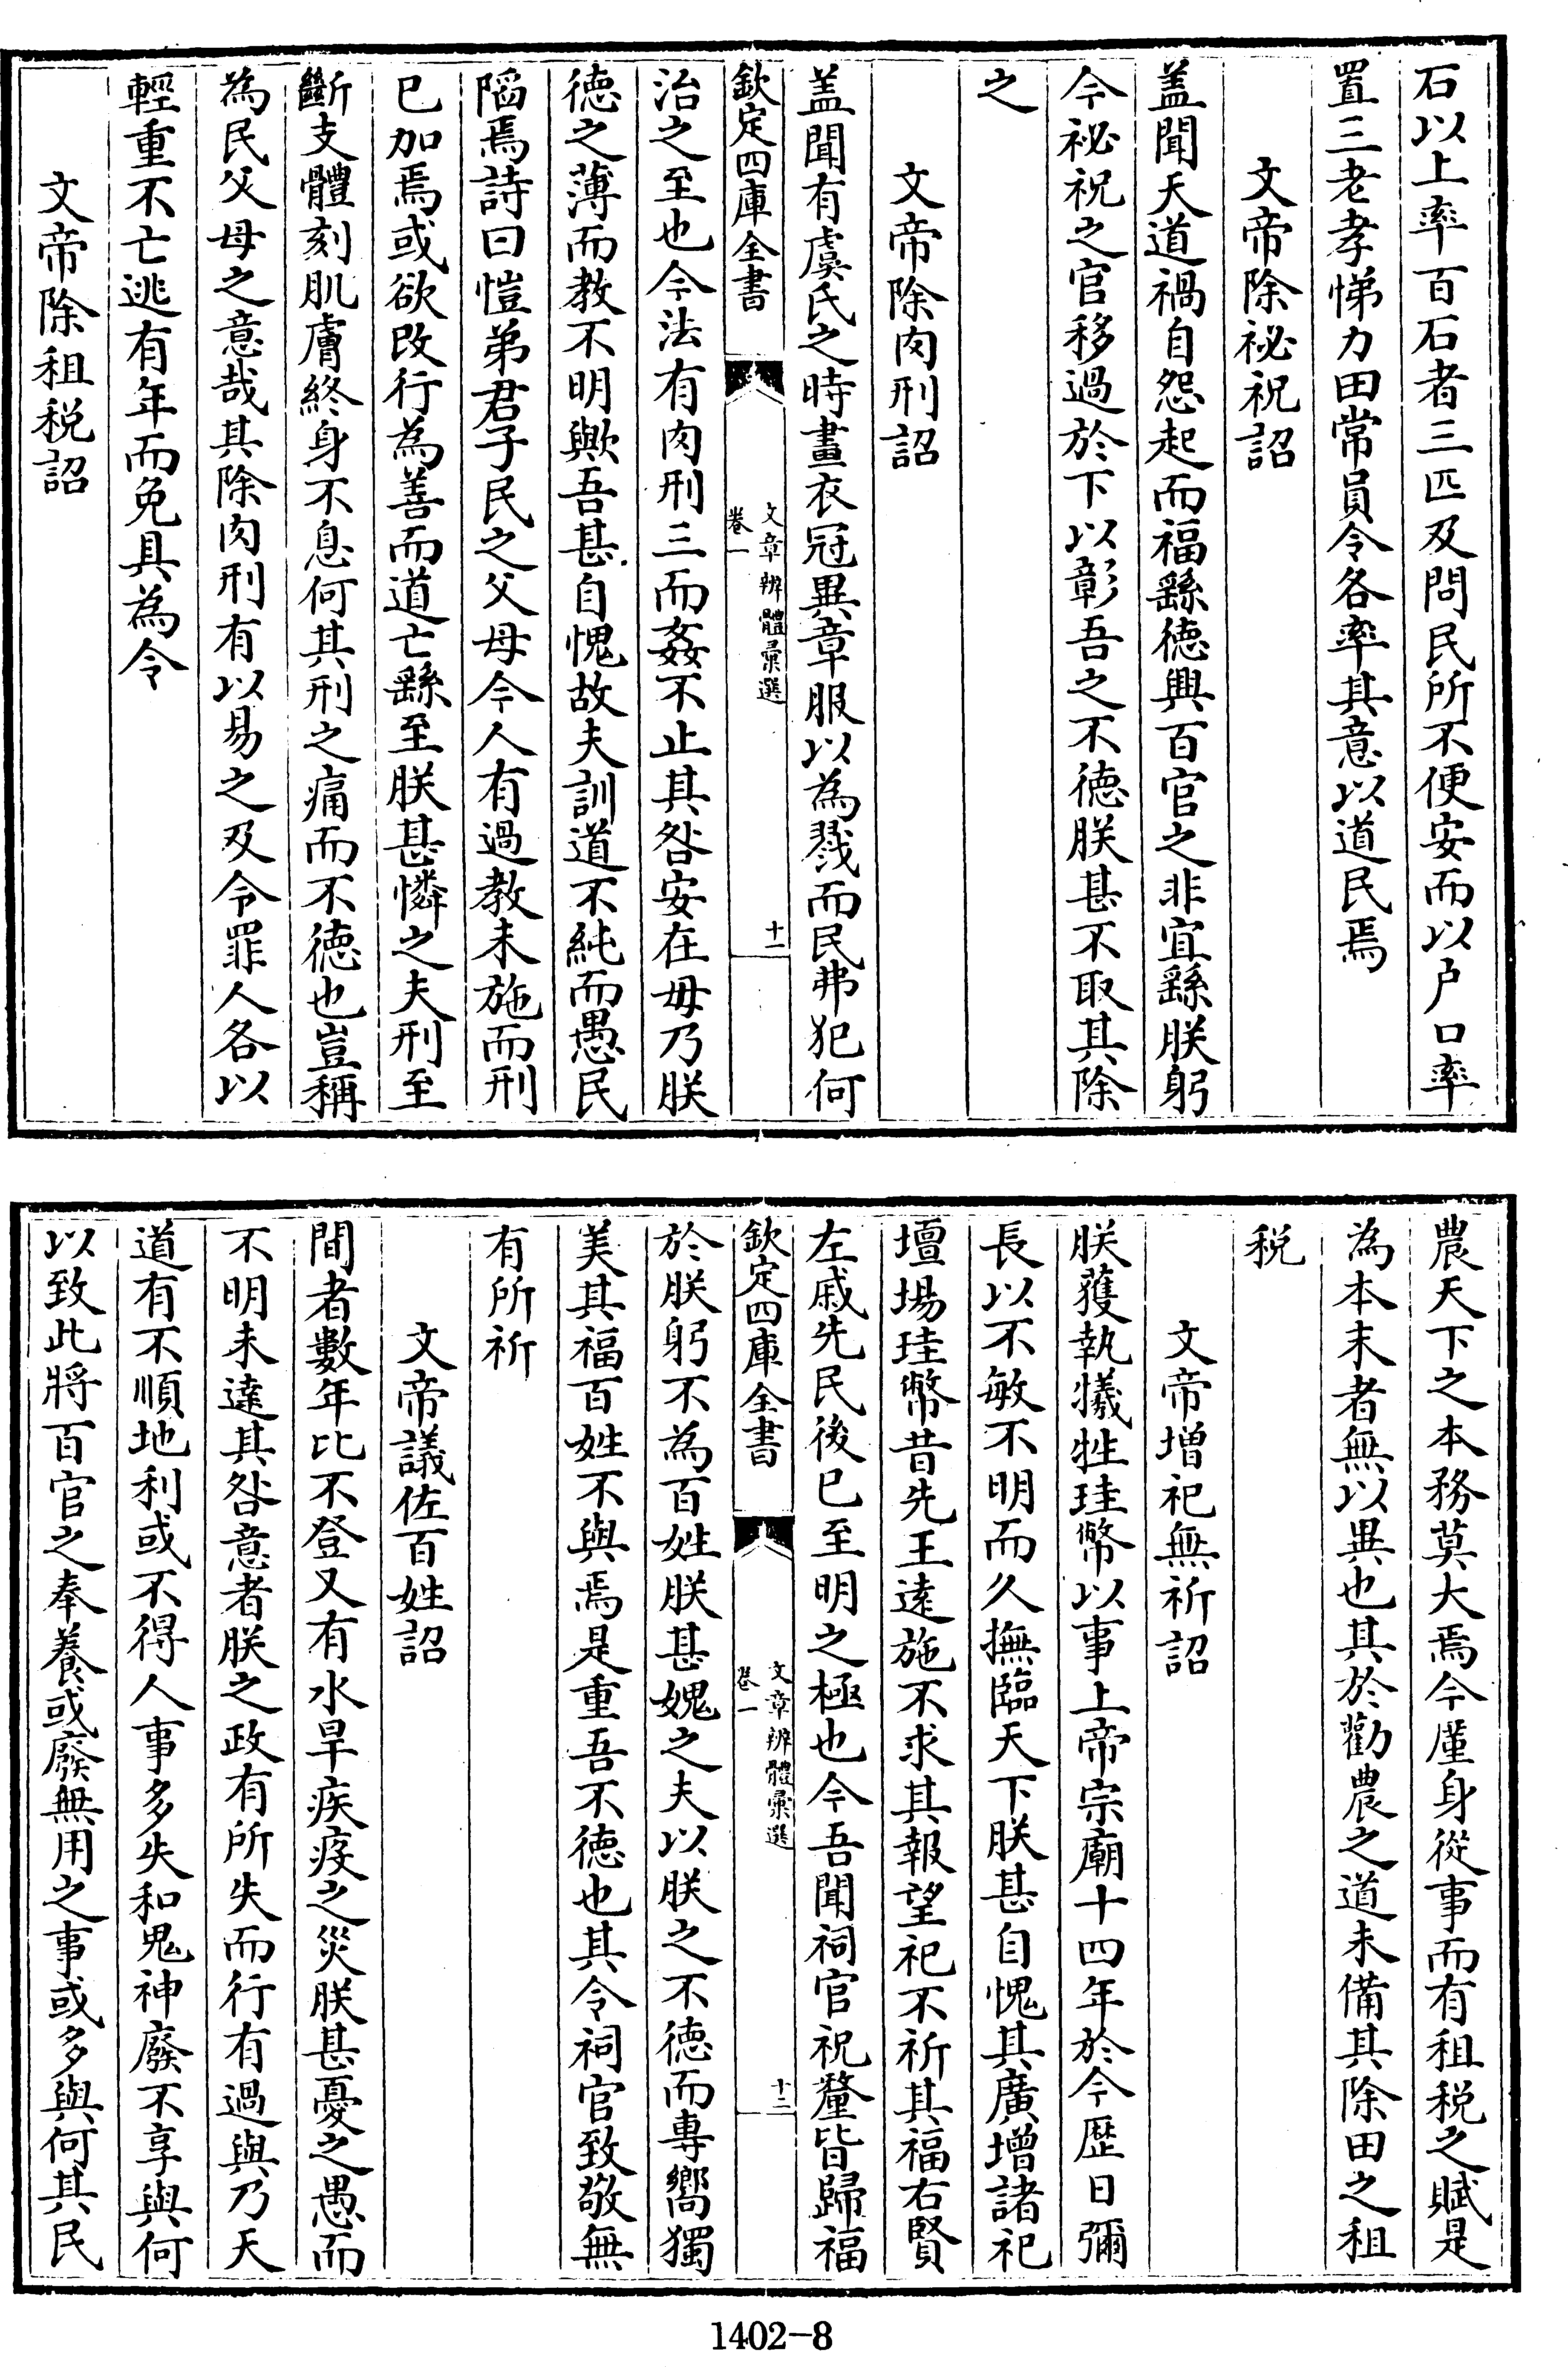 石以上率百石者三匹及問民所不便安而以户口率
置三老孝悌力田常員令各率其意以道民焉
文帝除祕祝詔
盖聞天道禍自怨起而福繇徳興百官之非宜繇朕躬
今祕祝之官移過於下以彰吾之不徳朕甚不取其除
之
文帝除肉刑詔
盖聞有虞氏之時畫衣冠異章服以為戮而民弗犯何
欽定四庫全書
文章辨體彙選
卷一
十一
治之至也今法有肉刑三而姦不止其咎安在毋乃朕
徳之薄而教不明歟吾甚自愧故夫訓道不純而愚民
陷焉詩曰愷弟君子民之父母今人有過教未施而刑
已加焉或欲改行為善而道亡繇至朕甚憐之夫刑至
斷支體刻肌膚終身不息何其刑之痛而不徳也豈稱
為民父母之意哉其除肉刑有以易之及令罪人各以
輕重不亡逃有年而免具為令
文帝除租税詔
農天下之本務莫大焉今廑身從事而有租税之賦是
為本末者無以異也其於勸農之道未備其除田之租
税
文帝增祀無祈詔
朕獲執犧牲珪幣以事上帝宗廟十四年於今歴日彌
長以不敏不明而久撫臨天下朕甚自愧其廣增諸祀
壇場珪幣昔先王逺施不求其報望祀不祈其福右賢
左戚先民後已至明之極也今吾聞祠官祝釐皆歸福
欽定四庫全書
文章辨體彙選
卷一
十二
於朕躬不為百姓朕甚媿之夫以朕之不徳而專嚮獨
美其福百姓不與焉是重吾不徳也其令祠官致敬無
有所祈
文帝議佐百姓詔
間者數年比不登又有水旱疾疫之災朕甚憂之愚而
不明未達其咎意者朕之政有所失而行有過與乃天
道有不順地利或不得人事多失和鬼神廢不享與何
以致此將百官之奉養或廢無用之事或多與何其民
1402-8